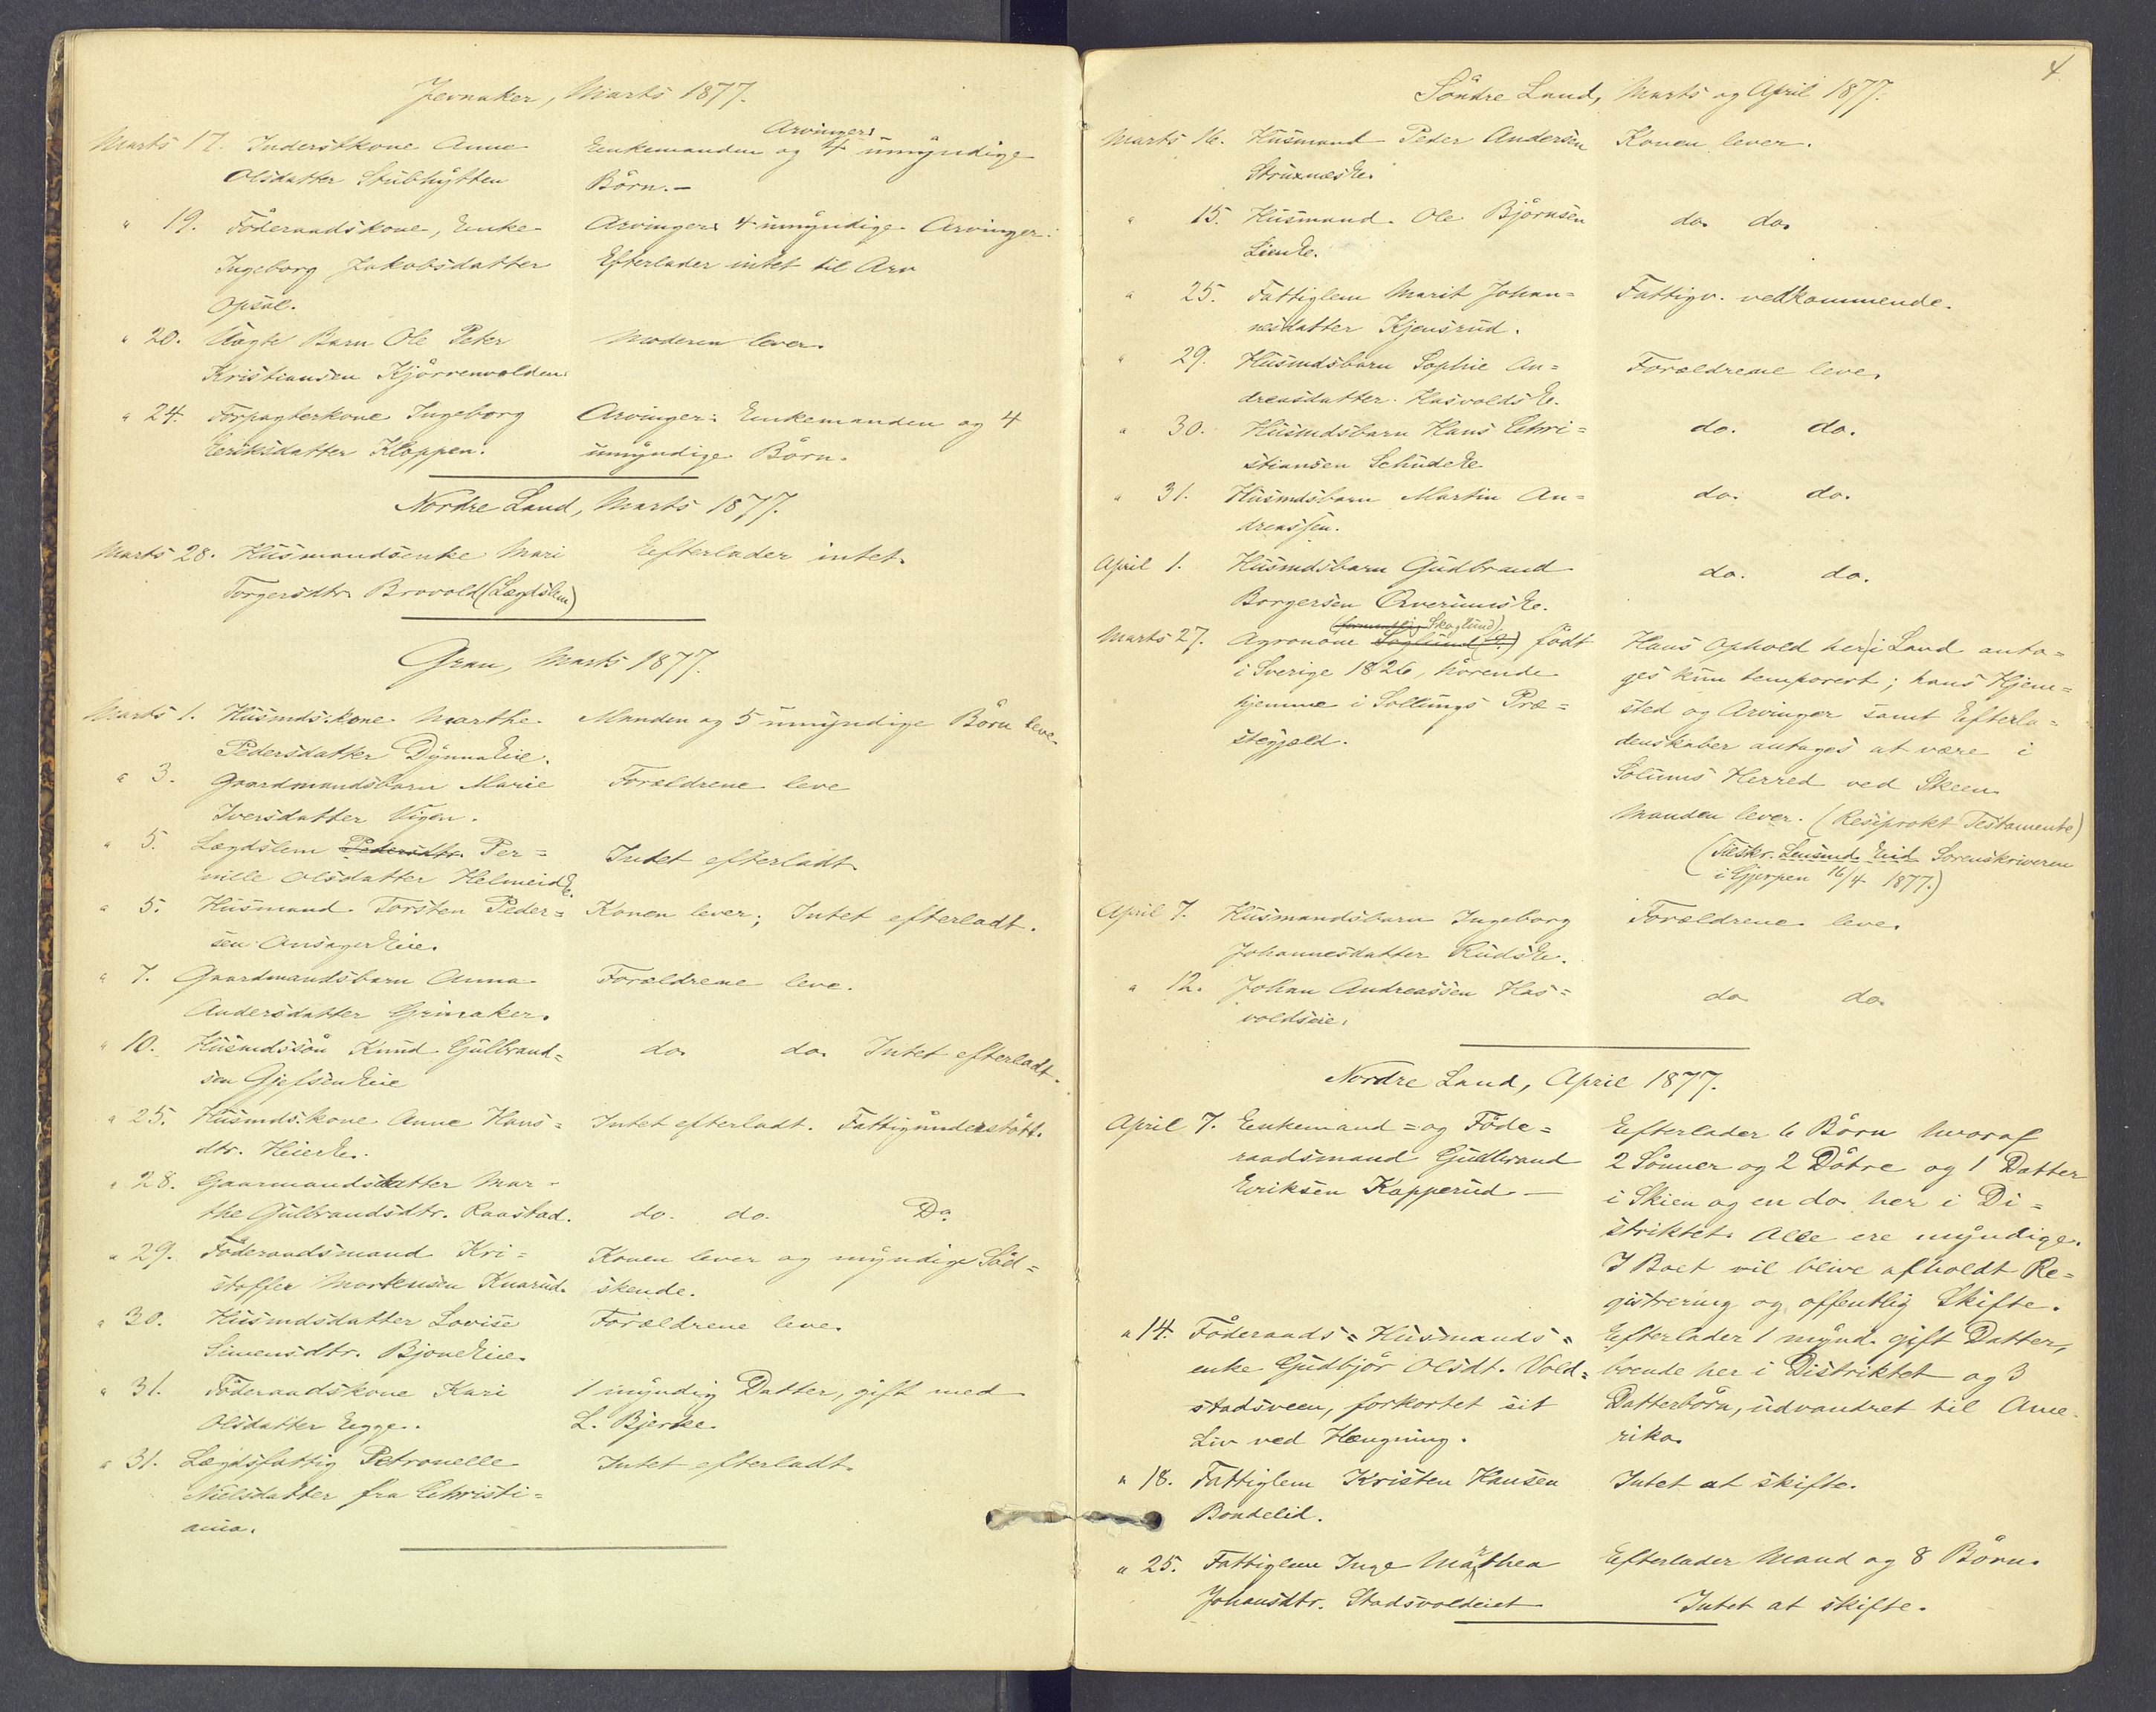 Jevnaker, Marts 1877.
Marts 17. Inderstkone Anne Enkemanden og Arvinger: 4 umyndige
Olsdatter Stubhytten Børn.-
" 19. Føderaadskone, Enke Arvinger: 4 umyndige Arvinger.
Ingeborg Jakobsdatter Efterlader intet til Arv
Opsal.
" 20. Uægte Barn Ole Peter Moderen lever.
Kristiansen Kjørrenvolden.
" 24. Forpagterkone Ingeborg Arvinger: Enkemanden og 4
Eriksdatter Kloppen. umyndige Børn.
Nordre Land, Marts 1877.
Marts 28. Husmandsenke Mari Efterlader intet.
Torgersdtr. Brovold (Lægdslem)
Gran, Marts 1877.
Marts 1. Husmdskone Marthe Manden og 5 umyndige Børn leve.
Pedersdatter DynnaEie.
" 3. Gaardmandsbarn Marie Forældrene leve
Iversdatter Vigen.
" 5. Lægdslem Pedersdtr. Per= Intet efterladt
nille Olsdatter HelmeidE.
" 5. Husmand Torsten Peder= Konen lever; Intet efterladt.
sen AnsagerEie.
" 7. Gaardmandsbarn Anna Forældrene leve.
Andersdatter Grinaker.
" 10. Husmdssøn Knud Gulbrand= do. do. Intet efterladt.
sen GjefsenEie
" 25. Husmdskone Anne Hans= Intet efterladt. Fattigunderstøtt.
dtr. HeierE.
" 28. Gaarmandsdatter Mar-
the Gulbrandsdtr. Raastad. do. do. Do.
" 29. Føderaadsmand Kri= Konen lever og myndige Sød=
stoffer Mortensen Knarud. skende.
" 30. Husmdsdatter Lovise Forældrene leve.
Simensdtr. BjoneEie.
" 31. Føderaadskone Kari 1 myndig Datter, gift med
Olsdatter Egge. L. Bjerke.
" 31. Lægdsfattig Petronelle Intet efterladt.
Nielsdatter fra Christi=
ania.
4
Søndre Land, Marts og April 1877.
Marts 16. Husmand Peder Andersen Konen lever.
StruxnæsE.
" 15. Husmand Ole Bjørnsen do. do.
LienE.
" 25. Fattiglem Marit Johan= Fattigv. vedkommende.
nesdatter Kjensrud.
" 29. Husmdsbarn Sophie An= Forældrene leve.
dreasdatter HasvoldsE.
" 30. Husmdsbarn Hans Chri= do. do.
stiansen SchudeE.
" 31. Husmdsbarn Martin An= do. do.
dreassen.
April 1. Husmdsbarn Gudbrand do. do.
Borgersen QverumsE.
(formentlig Skoglund)
Marts 27. Agronom Soglund (?) født Hans Ophold her i Land anta=
i Sverige 1826, hørende ges kun temporært; hans Hjem=
hjemme i Sollungs Præ= sted og Arvinger samt Efterla=
stegjæld. denskaber antages at være i
Solums Herred ved Skeen.
Manden lever. (Resiprokt Testamente)
(Tilskr. Lensmd. Eid Sorenskriveren
i Gjerpen 16/4 1877.)
April 7. Husmandsbarn Ingeborg Forældrene leve.
Johannesdatter RudsE.
" 12. Johan Andreassen Has= do. do.
voldseie.
Nordre Land, April 1877.
April 7. Enkemand= og Føde= Efterlader 6 Børn hvoraf
raadsmand Gudbrand 2 Sønner og 2 Døtre og 1 Datter
Eriksen Kapperud.— i Skien og en do. her i Di=
striktet. Alle ere myndige.
I Boet vil blive afholdt Re=
gistrering og offentlig Skifte.
" 14. Føderaads= Husmands= Efterlader 1 mynd. gift Datter,
enke Gudbjør Olsdt. Vold= boende her i Distriktet og 3
stadsveen, forkortet sit Datterbørn, udvandret til Ame-
Liv ved Hængning. rika.
" 18. Fattiglem Kristen Hansen Intet at skifte.
Bondelid.
" 25. Fattiglem Inge Marthea Efterlader Mand og 8 Børn.
Johansdtr. Stadsvoldeiet Intet at skifte.